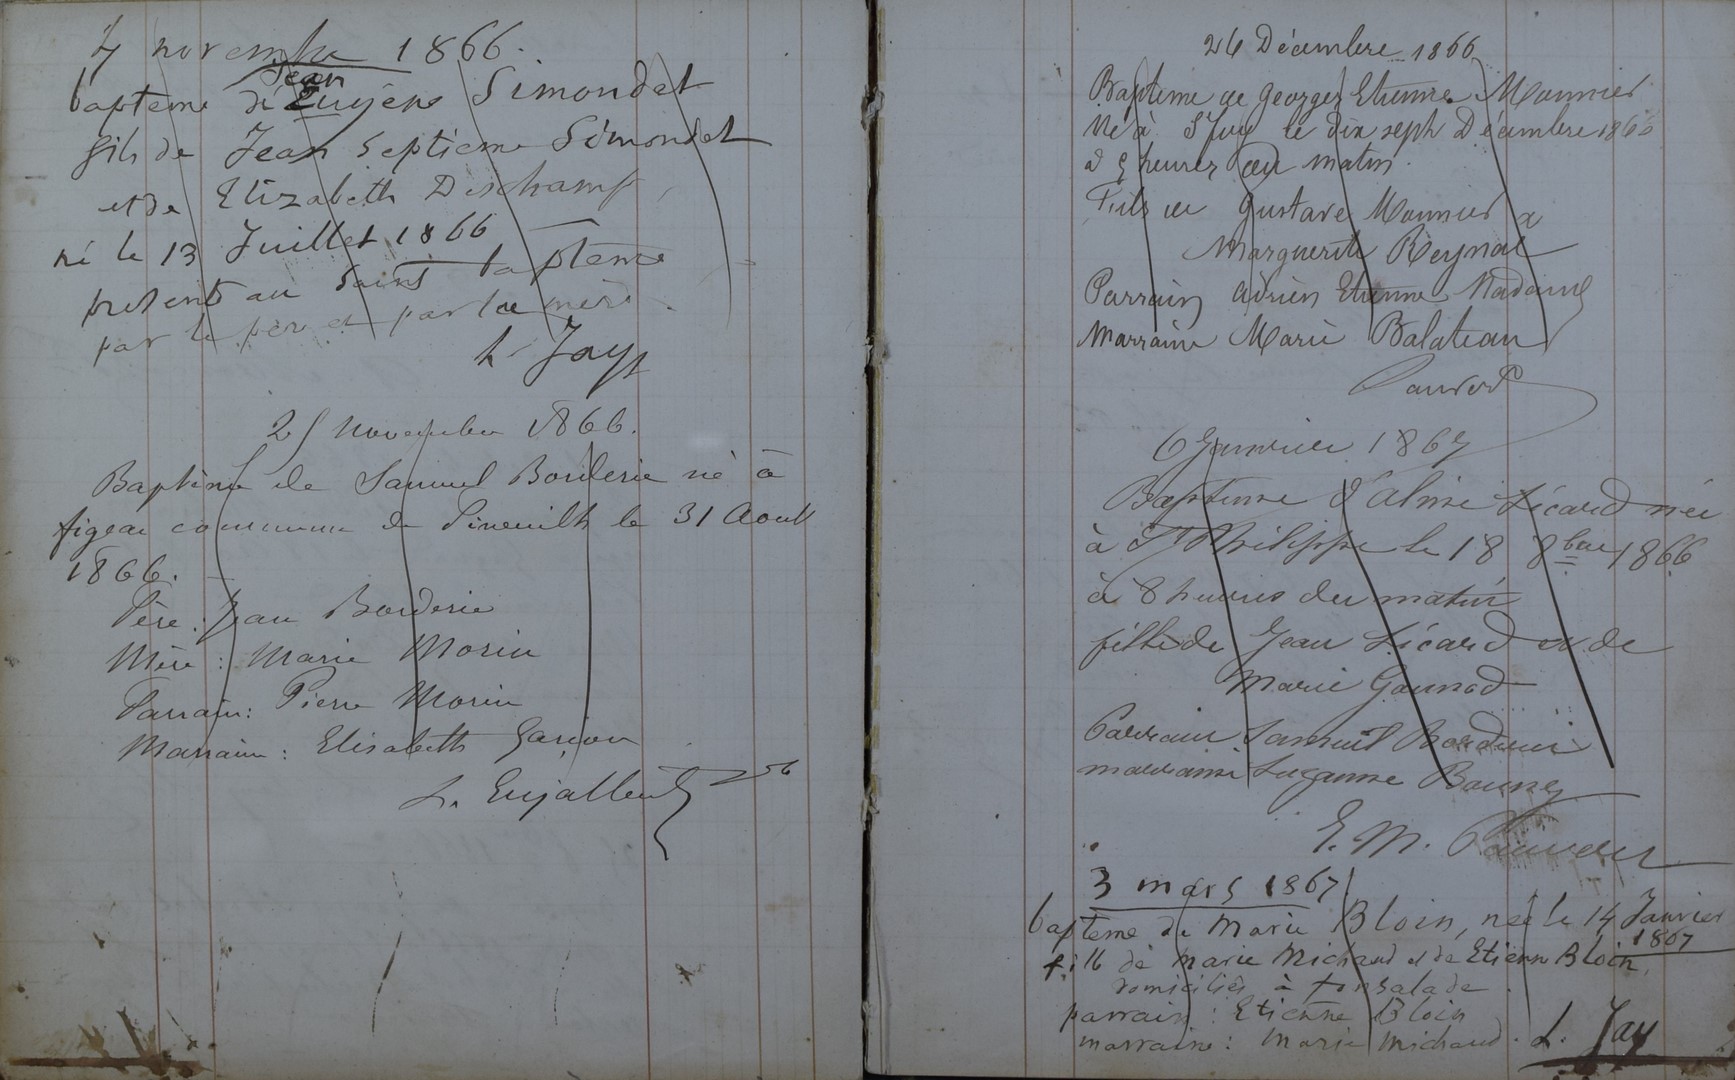 4 novembre 1866.
Jean
bapteme de Eugène Simondet
fils de Jean Septième Simondet
et de Elizabeth Deschamp
né le 13 Juillet 1866
présenté au Saint baptême
par le père et par la mère.
L. Jay
25 Novembre 1866.
Baptême de Samuel Borderie né à
figeac commune de Pineuilh le 31 Aout
1866.
Père : Jean Borderie
Mère : Marie Morin
Parrain : Pierre Morin
Marraine : Elisabeth Garçon
L. Enjalbert
26 Décembre 1866
Baptême de Georges Etienne Monnier
Né à Ste foy le dix sept Décembre 1866
à 5 heures du matin.
Fils de Gustave Monnier &
Marguerite Reynal
Parrain Adrien Etienne Nadaud
Marraine Marie Balateau
6 Janvier 1867
Baptême d'aline Sicard née
à St Philippe le 18 8bre 1866
à 8 heures du matin
fille de Jean Sicard et de
Marie Gounod
Parrain Samuel Borderie
marraine Suzanne
E. M.
3 mars 1867
bapteme de Marie Bloin, née le 14 Janvier
1867
fille de Marie Michaud et de Etienne Bloin,
domiciliés à fonsalade.
parrain : Etienne Bloin
marraine : Marie Michaud. L. Jay